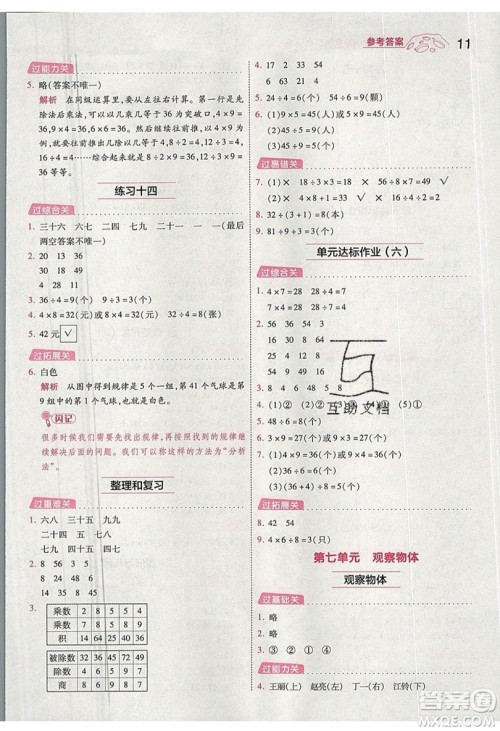 参考答案
11
过能力关
5. 略(答案不唯一)
解析 在同级运算里,要从左往右计算。所以先
除法后乘法,可以从几乘几等于36,4×9=
36,9×4=36,6×6=36作突破口,4×9=
36,相应的就会有几除以几等于4,8÷2=4,12÷3=4,
16÷4=4……综合起来就有8÷2×9=36,12÷3×9=
36等等。
练习十四
过综合关
1. 三十六 六七 二四 四七 二十一 一 九(最后
两空答案不唯一)
2. 20 13 36
49 16 18
24 54 31
3. 36÷4=9(个) 9÷3=3(个)
4. 4×8=32(元)或8×4=32(元) 32÷4=8(张)
5. 42元 √
过拓展关
6. 白色
解析 从图中得到规律是5个一组,第41个气球是
第9组的第1个气球,是白色的。
闪记
很多时候,我们需要先找出规律,再按照规律继
续解决后面的问题。我们把这种方法称为“分析
法”。
整理和复习
过重难关
1. 六八 三十五 九九
二十四 四七 三十五 九九
2. 8 56 4
35 8 7
14 9 45
64 9 8
3. 乘数 2 8 5 5 4
乘数 7 8 8 4 6
积 14 64 40 20 24
被除数 16 42 12 20 21
除数 8 7 6 4 3
商 2 6 2 5 7
4. 9 5 54 7
6 63 8 9
5. 24÷4=6(个) 54÷6=9(颗)
6. (1)5×9=45(人)或9×5=45(人)
(2)45÷5=9(个)
(3)45÷9=5(个)
过易错关
7. (1)× 18÷3×4=24 (2)√
(3)× 16÷2×2=16
8. 81÷9÷3=3(个)
单元达标作业(六)
过综合关
1. 4×7=28 7×4=28 28÷4=7 28÷7=4
2. 56 54 3
16 30 8 64
25 4 8 12
54 48 9 8
3. (1)② (2)① (3)② (4)① (5)①
4. 48÷6=8 27÷9=3
5. 6×8=48(个) 48÷8=6(个)
6. 9×2÷3=6(个)
7. (1)4×9=36(个)或9×4=36(个)
(2)36÷6=6(个)
过拓展关
8. 42 54
9. 4×6÷8=3(只)
第七单元 观察物体
观察物体
过基础关
1. 略
2. 略
3. ③ ② ① ④
过能力关
4. 王丽(上) 赵亮(左) 丁一(右) 江铃(下)
互助文档
答案圈
MXQE.COM